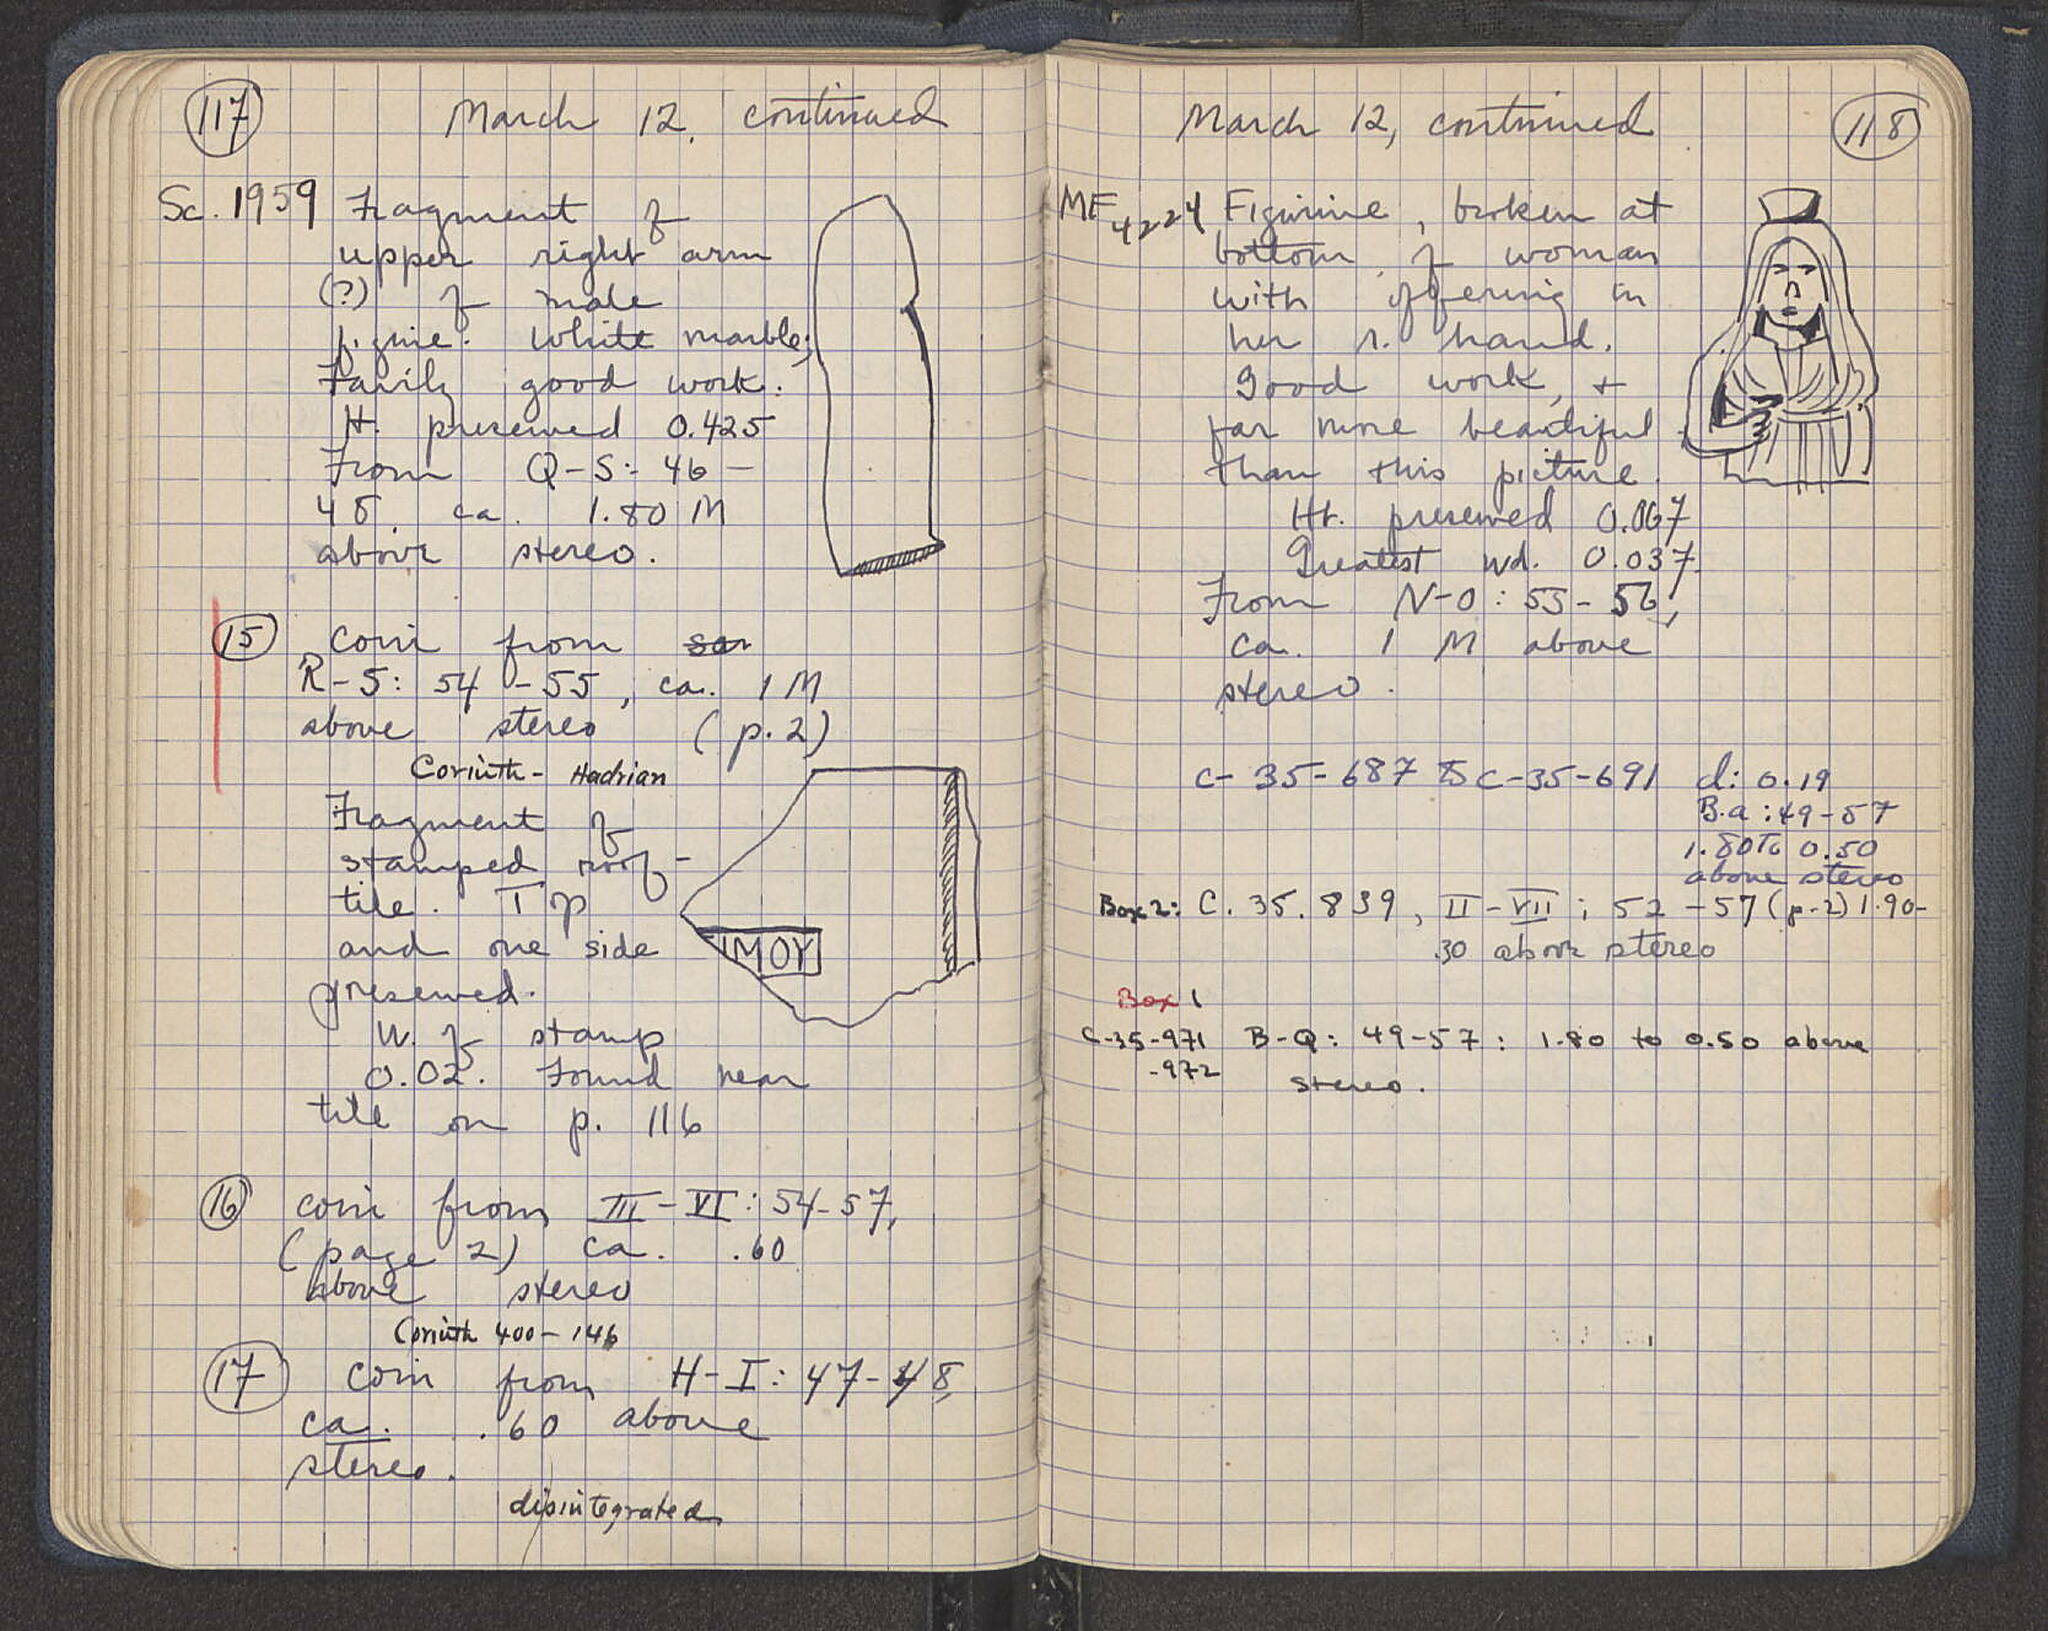 117
March 12, continued
Sc. 1959 Fragment of
upper right arm
(?) of male
figure. White marble;
Fairly good work.
H. preserved 0.425
From Q-S:- 46 -
48, ca. 1.80 M
above stereo.
15 coin from
R-S: 54 - 55, ca. 1 M
above stereo (p. 2)
Corinth - Hadrian
Fragment of
stamped roof-
tile. Top
and one side
preserved.
W. of stamp
0.02. Found near
tile on p. 116
ΙΜΟΥ
16 coin from III - VI: 54-57,
(page 2) ca. .60
above stereo
Corinth 400 - 146
17 coin from H-I: 47-48,
ca. .60 above
stereo.
disintegrated
March 12, continued
118
MF 4224 Figurine, broken at
bottom, of woman
with offering in
her r. hand.
Good work, +
far more beautiful
than this picture.
Ht. preserved 0.067
Greatest wd. 0.037.
From N-O: 55-56,
ca. 1 M above
stereo.
C-35-687 to C-35-691 d: 0.19
B.a: 49-57
1.80 to 0.50
above stereo
Box 2: C. 35. 839, II-VII; 52 -57 (p-2) 1.90-
.30 above stereo
Box 1
C-35-971 B-Q: 49-57: 1.80 to 0.50 above
-972 stereo.